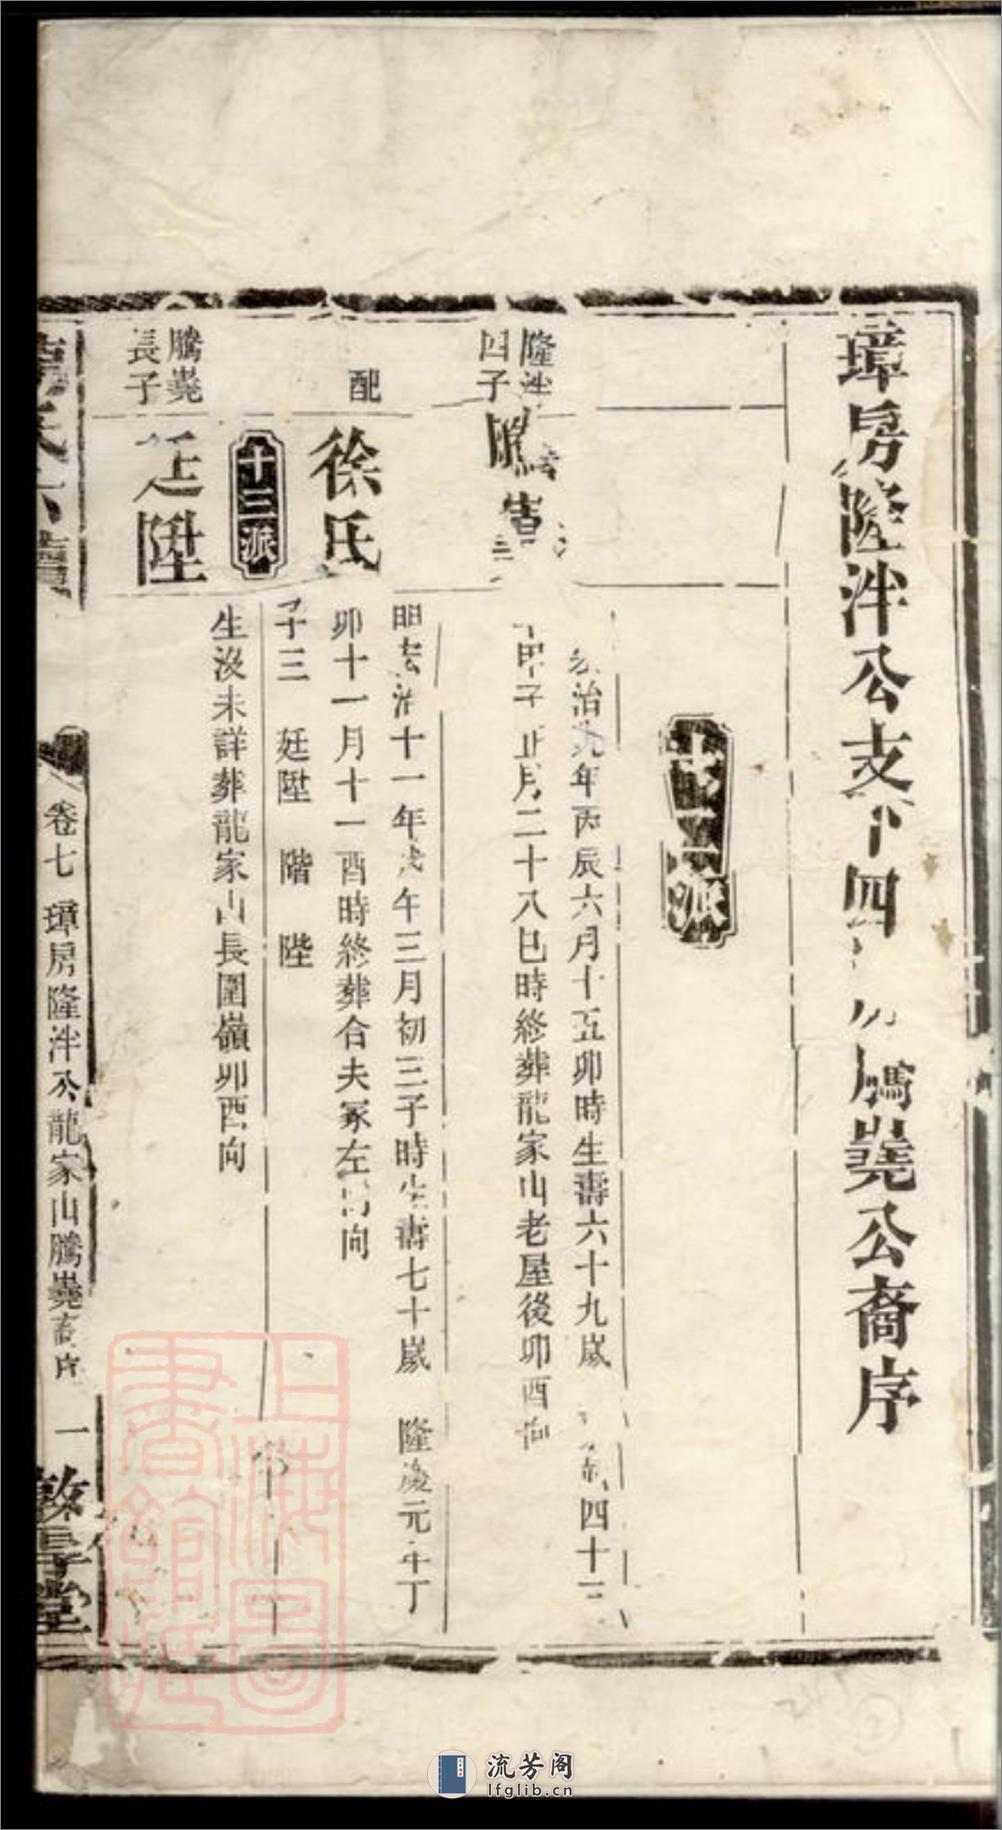 璋房隆泮公支下四房騰蕘公裔序
十二派
隆泮四子
騰蕘
弘治九年丙辰六月十五卯時生壽六十九歲 靖四十三
甲子正月二十八巳時終葬龍家山老屋後卯酉向
配
徐氏
明弘治十一年戊午三月初三子時生壽七十歲 隆慶元年丁
卯十一月十一酉時終葬合夫冢左 向
子三 廷陞 階 陛
十三派
騰蕘長子
廷陞
生沒未詳葬龍家山長圍嶺卯酉向
氏六續
卷七 璋房隆泮公龍家山騰蕘裔序 一 敦厚堂
上海圖書館藏
流芳阁
lfglib.cn